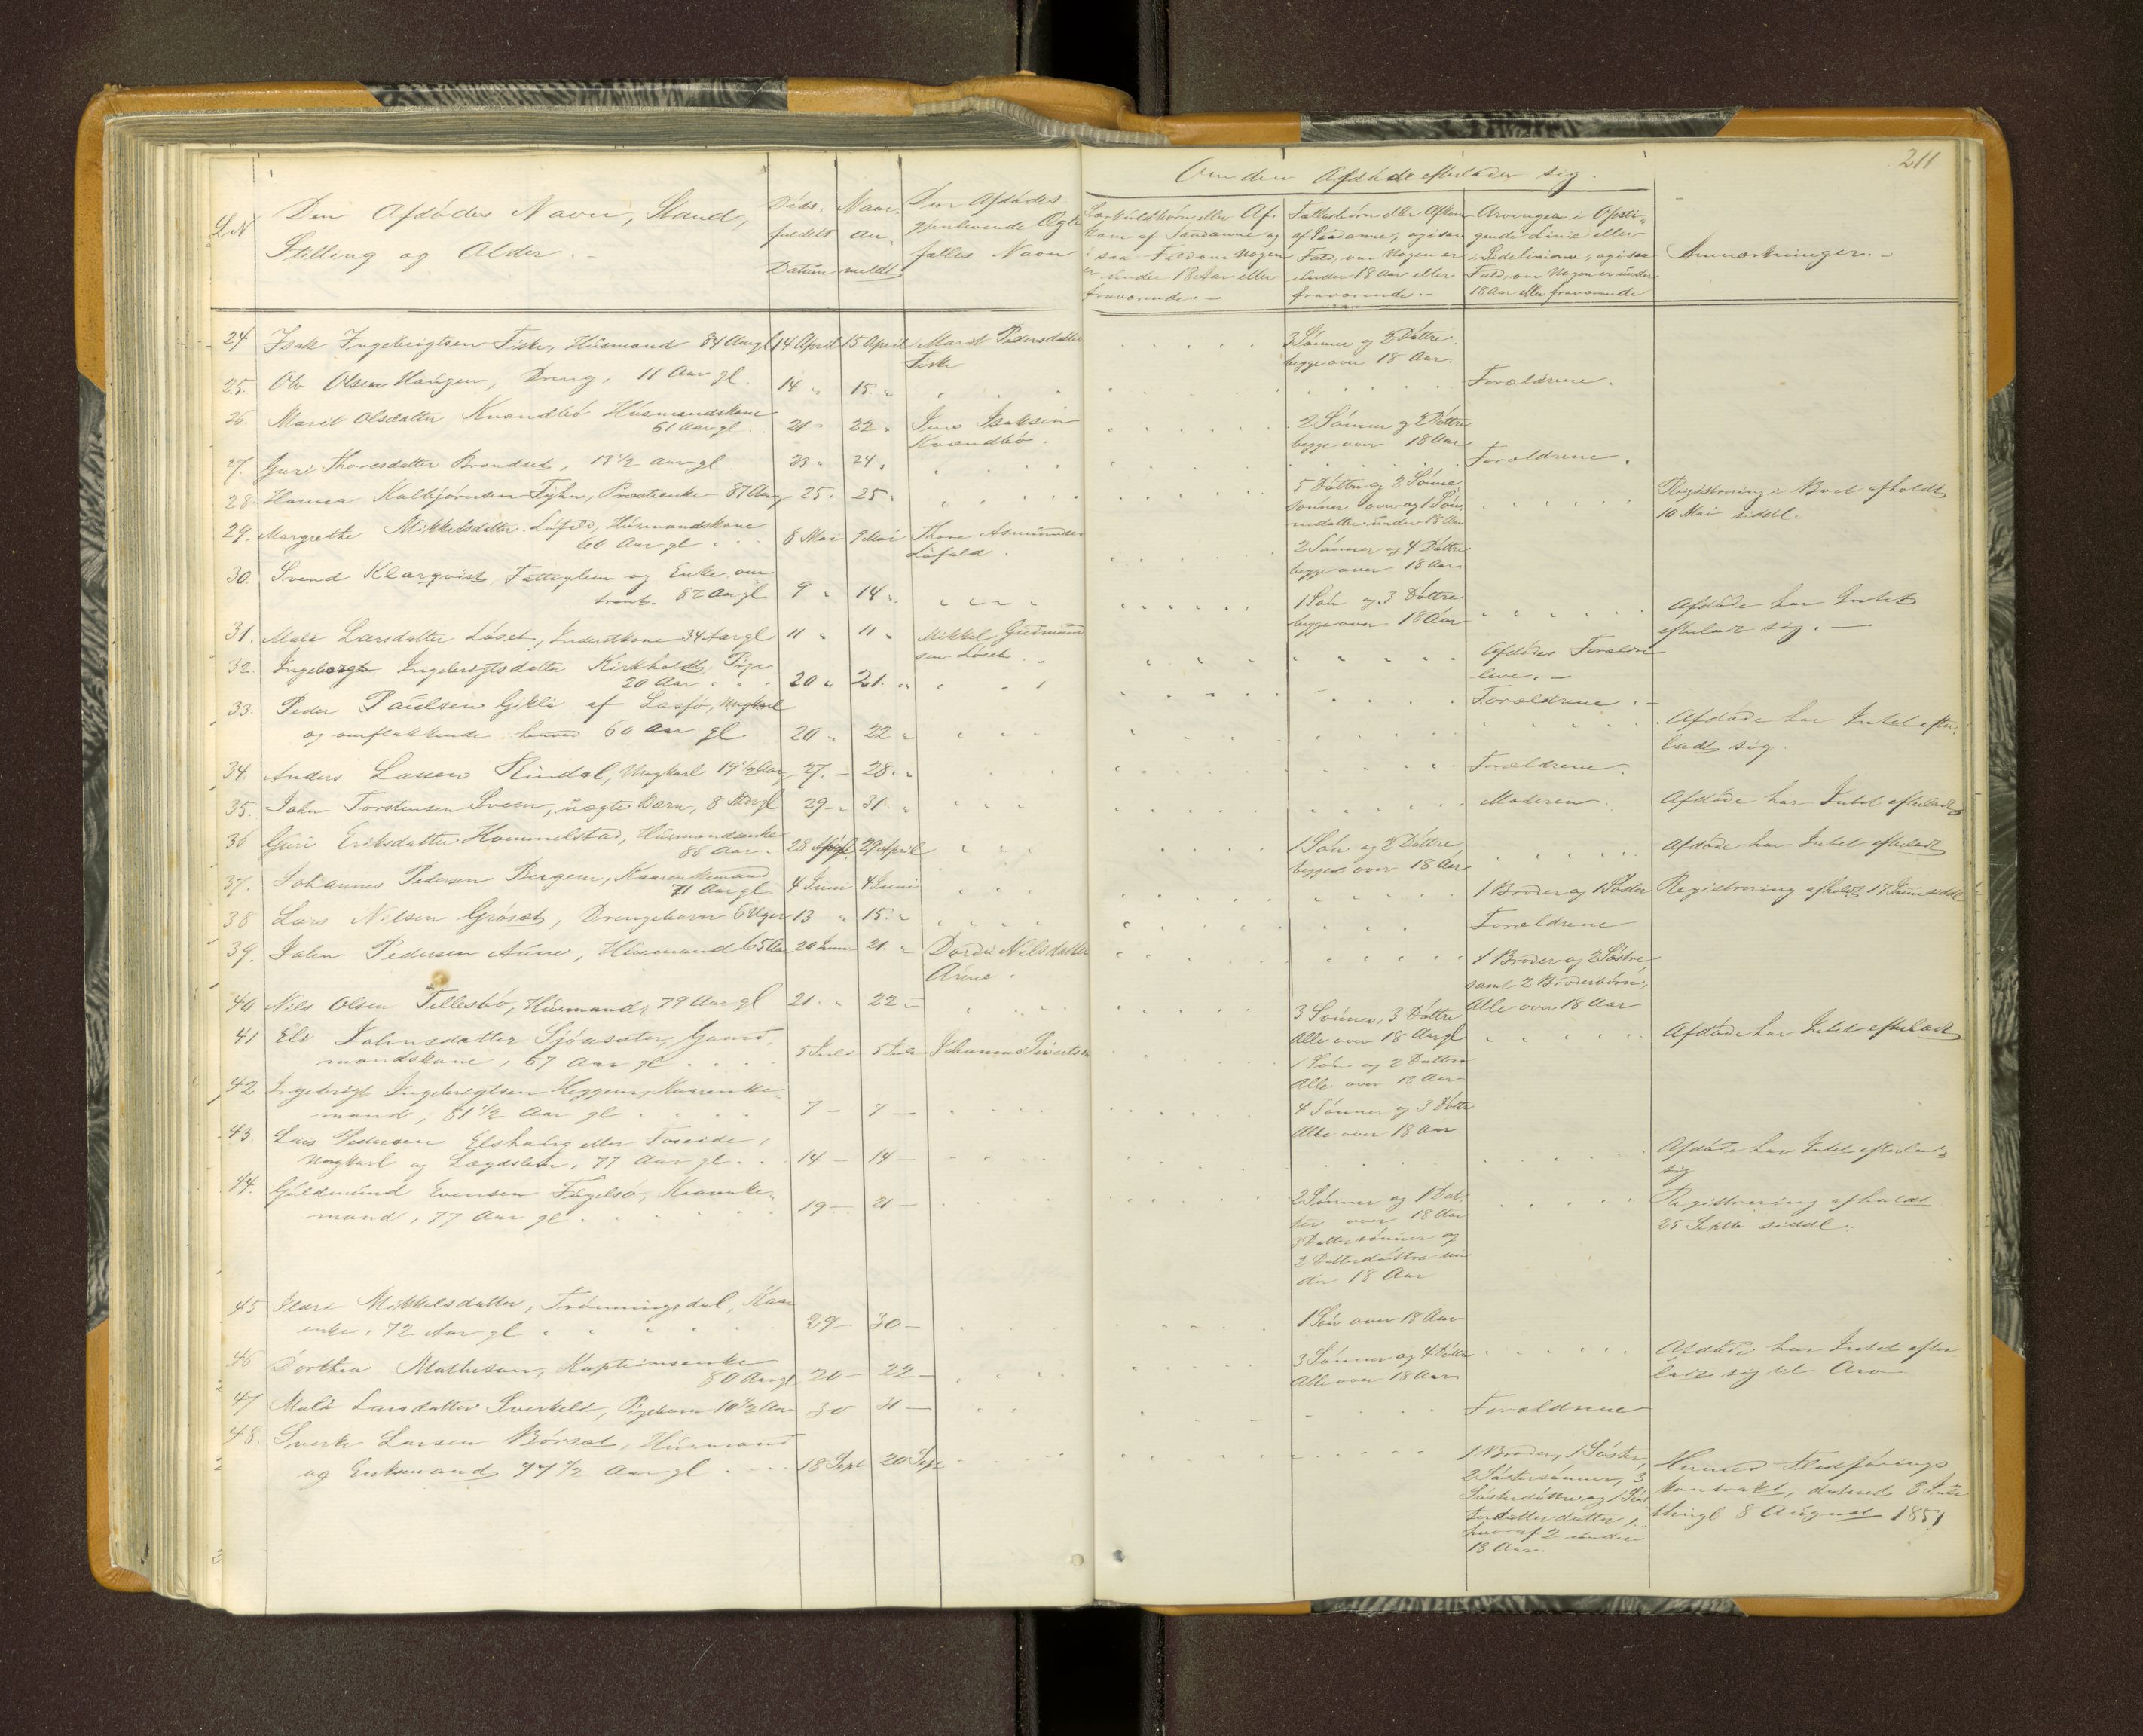 211
Om den Afdøde efterlader sig.
LN
Den Afdødes Navn, Stand,
Stilling og Alder.
Døds-
faldets
Datum
Naar
an-
meldt
Den Afdødes
gjenlevende Ægte
fælles Navn
Særkuldbørn eller Af-
kom af Saadanne og
i saa Fald om Nogen
er under 18 Aar eller
fraværende.
Fællesbørn eller Afkom
af Saadanne, og i saa
Fald, om Nogen er
under 18 Aar eller
fraværende.
Arvinger i Opsti-
gende Linie eller
i Sidelinierne, og i saa
Fald, om Nogen er under
18 Aar eller fraværende
Anmærkninger.
24 Isak Ingebrigtsen Fiske, Huusmand 84 Aar gl 14 April 15 April Marit Pedersdatter 3 Sønner og 2 Døttre
Fiske begge over 18 Aar.
25. Ole Olsen Haugen, Dreng, 11 Aar gl. 14 " 15. " Forældrene.
26. Marit Olsdatter Kvandbø Huusmandskone 2 Sønner og 2 Døttre
61 Aar gl. 21 " 22 " Jens Isaksen begge over 18 Aar
Kvændbø.
27. Guri Thoresdatter Brandset, 13½ Aar gl. 23 " 24 " Forældrene.
28. Hanna Kalbjørnsen Fyhn, Præsteenke 87 Aar 25. 25. 5 Døttre og 2 Sønne- Registrering i Boet afholdt
sønner over og 1 Søn- 10 Mai siddl.
nedatter under 18 Aar
29. Margrethe Mikkelsdatter Løfald, Huusmandskone
60 Aar gl 8 Mai 9 Mai Thore Asmundsen 2 Sønner og 4 Døttre
Løfald. begge over 18 Aar
30. Svend Klarqvist, Fattiglem og Enke, om
trent. 82 Aar gl 9 " 14 " 1 Søn og 3 Døttre Afdøde har Intet
begge over 18 Aar efterladt sig.
31. Mali Larsdatter Løset, Inderstkone 34 Aar gl 11 " 11 " Mikkel Gudmund Afdødes Forældre
sen Løset. leve.
32. Ingeborg Ingebrigtsdatter Kirkholdt, Pige
20 Aar 20 " 21. " Forældrene
33. Peder Paulsen Gikli af Lasjø, Ungkarl Afdøde har Intet efter-
og omflakkende 60 Aar gl. 20 " 22 " ladt sig
34. Anders Larsen Rindal, Ungkarl 19½ Aar 27. 28. Forældrene.
35. John Torstensen Sveen, uægte Barn, 8 Aar gl 29 31 Moderen. Afdøde har Intet efterladt
36 Guri Eriksdatter Hommelstad, Huusmandsenke
86 Aar. 28 April 29 April 1 Søn og 2 Døttre, Afdøde har Intet efterladt
begge over 18 Aar
37. Johannes Pedersen Bergem, Kaarenkemand
71 Aar gl. 4 Juni 4 Juni 1 Broder og 1 Søster Registrering afholdt 17 Juni siddl
38 Lars Nilsen Grøset, Drengebarn 6 Uger 13 " 15. " Forældrene
39. John Pedersen Aune, Huusmand 65 Aar 20 Juni 21. " Dordi Nilsdatter 1 Broder og 2 Søstre
Aune. samt 2 Broderbørn,
Alle over 18 Aar
40 Nils Olsen Tellesbø, Huusmand, 79 Aar gl 21. " 22 — 3 Sønner, 3 Døttre
Alle over 18 Aar gl Afdøde har Intet efterladt
41 Eli Johnsdatter Sjøasæter, Gaard-
mandskone, 67 Aar gl 5 Juli 5 Juli Johannes Sivertsen 1 Søn og 2 Døttre
Alle over 18 Aar
42 Ingebrigt Ingebrigtsen Heggem, Kaarenke-
mand, 81½ Aar gl. 7 — 7 — 4 Sønner og 3 Døttre
Alle over 18 Aar
43. Lars Pedersen Elshaug eller Foreide,
Ungkarl og Lægdslem, 77 Aar gl. 14 — 14 — Afdøde har Intet efterladt
sig
44. Guldmund Evensen Fugelsø, Kaarenke-
mand, 77 Aar gl. 19 — 21 — 2 Sønner og 1 Dat- Registrering afholdt
ter over 18 Aar 25 Septbr siddl.
3 Dattersønner og
2 Datterdøttre un
der 18 Aar
45 Sidre Mikkelsdatter, Trønningsdal, Kaar
enke, 72 Aar gl 29 — 30 — 1 Søn over 18 Aar
46 Dorthea Mathesen, Kapteinsenke
80 Aar gl 20 — 22 — 3 Sønner og 4 Døttre Afdøde har Intet efter
Alle over 18 Aar ladt sig til Arv
47 Mali Larsdatter Sverkeli, Pigebarn 10½ Aar 30 31 — Forældrene
48. Sverke Larsen Børset, Huusmand
og Enkemand 77½ Aar gl. 18 Sept 20 Sept 1 Broder, 1 Søster, Flødførings
2 Søstersønner, 3 kontrakt, dateret 3 Juli
Søsterdøttre og 1 Søs-
terdatterdatter, thingl 8 August 1851
hvoraf 2 under
18 Aar.